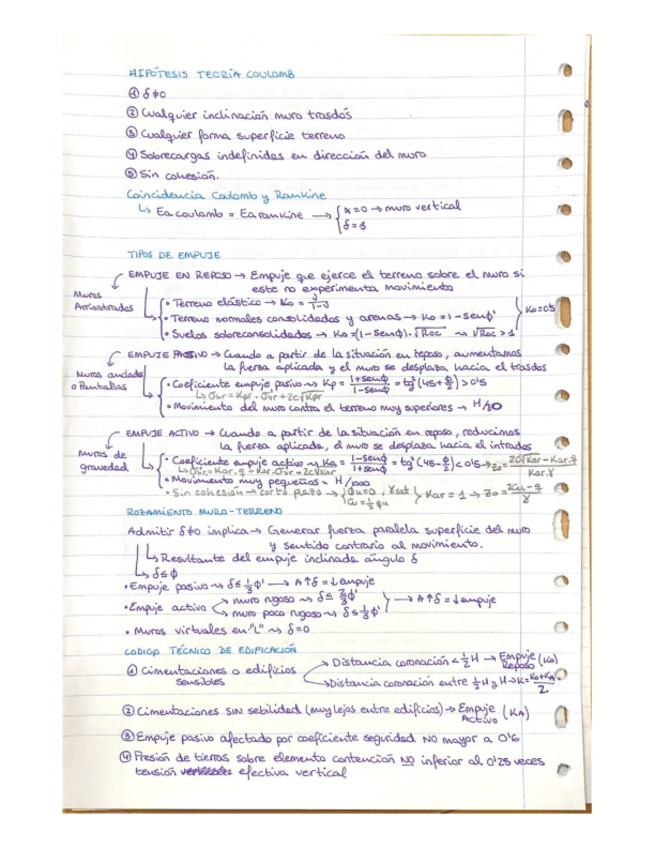 HIPÓTESIS TEORÍA COULOMB
① δ≠0
② Cualquier inclinación muro trasdós
③ Cualquier forma superficie terreno
④ Sobrecargas indefinidas en dirección del muro
⑤ Sin cohesión.
Coincidencia Coulomb y Rankine
↳ Ea coulomb = Ea rankine → { α=0 → muro vertical
TIPOS DE EMPUJE
EMPUJE EN REPOSO → Empuje que ejerce el terreno sobre el muro si
este no experimenta movimiento
Muros Arriostrados
• Terreno elástico → Ko =
• Terreno normales consolidados y arenas → Ko = 1 - senφ'
• Suelos sobreconsolidados → Ko = (1 - senφ') · √Roc ⇝ √Roc > 1
} Ko=0'5
EMPUJE PASIVO → Cuando a partir de la situación en reposo, aumentamos
la fuerza aplicada y el muro se desplaza hacia el trasdós
Muros anclados o Pantallas
• Coeficiente empuje pasivo ⇝ Kp = (1+senφ)/(1-senφ) = tg²(45+φ/2) > 0'5
• Movimiento del muro contra el terreno muy superiores → H/10
EMPUJE ACTIVO → Cuando a partir de la situación en reposo, reducimos
la fuerza aplicada, el muro se desplaza hacia el intradós
Muros de gravedad
• Coeficiente empuje activo ⇝ Ka = (1-senφ)/(1+senφ) = tg²(45-φ/2) < 0'5 → Zo = (2c√Kar - Kar.q)/(Kar.γ)
• Movimiento muy pequeños = H/1000
• Sin cohesión → corto plazo → { φu=0, γsat
cu=½qu } Kar = 1 → Zo = (2cu - q)/γ
ROZAMIENTO MURO-TERRENO
Admitir δ≠0 implica → Generar fuerza paralela superficie del muro
y sentido contrario al movimiento.
↳ Resultante del empuje inclinada ángulo δ
↳ δ≤φ
• Empuje pasivo ⇝ δ≤⅓φ' → A↑δ = ↓empuje
• Empuje activo
muro rugoso ⇝ δ≤ ⅔φ'
muro poco rugoso ⇝ δ≤⅓φ'
} → A↑δ = ↓empuje
• Muros virtuales en "L" ⇝ δ=0
CODIGO TÉCNICO DE EDIFICACIÓN
① Cimentaciones o edificios sensibles
→ Distancia coronación < ½H → Empuje Reposo (Ko)
→ Distancia coronación entre ½H y H → K = (Ko+KA)/2
② Cimentaciones SIN sebilidad (muy lejos entre edificios) → Empuje Activo (KA)
③ Empuje pasivo afectado por coeficiente seguridad NO mayor a 0'6
④ Presión de tierras sobre elemento contención NO inferior al 0'25 veces
tensión efectiva vertical